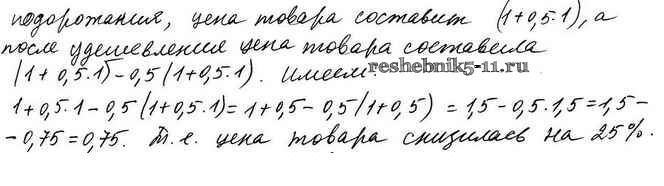 подорожания, цена товара составит (1+0,5·1), а
после удешевления цена товара составила
(1+0,5·1)-0,5(1+0,5·1). Имеем:
reshebnik5-11.ru
1+0,5·1-0,5(1+0,5·1)=1+0,5-0,5(1+0,5)=1,5-0,5·1,5=1,5-
-0,75=0,75. Т.е. цена товара снизилась на 25%.